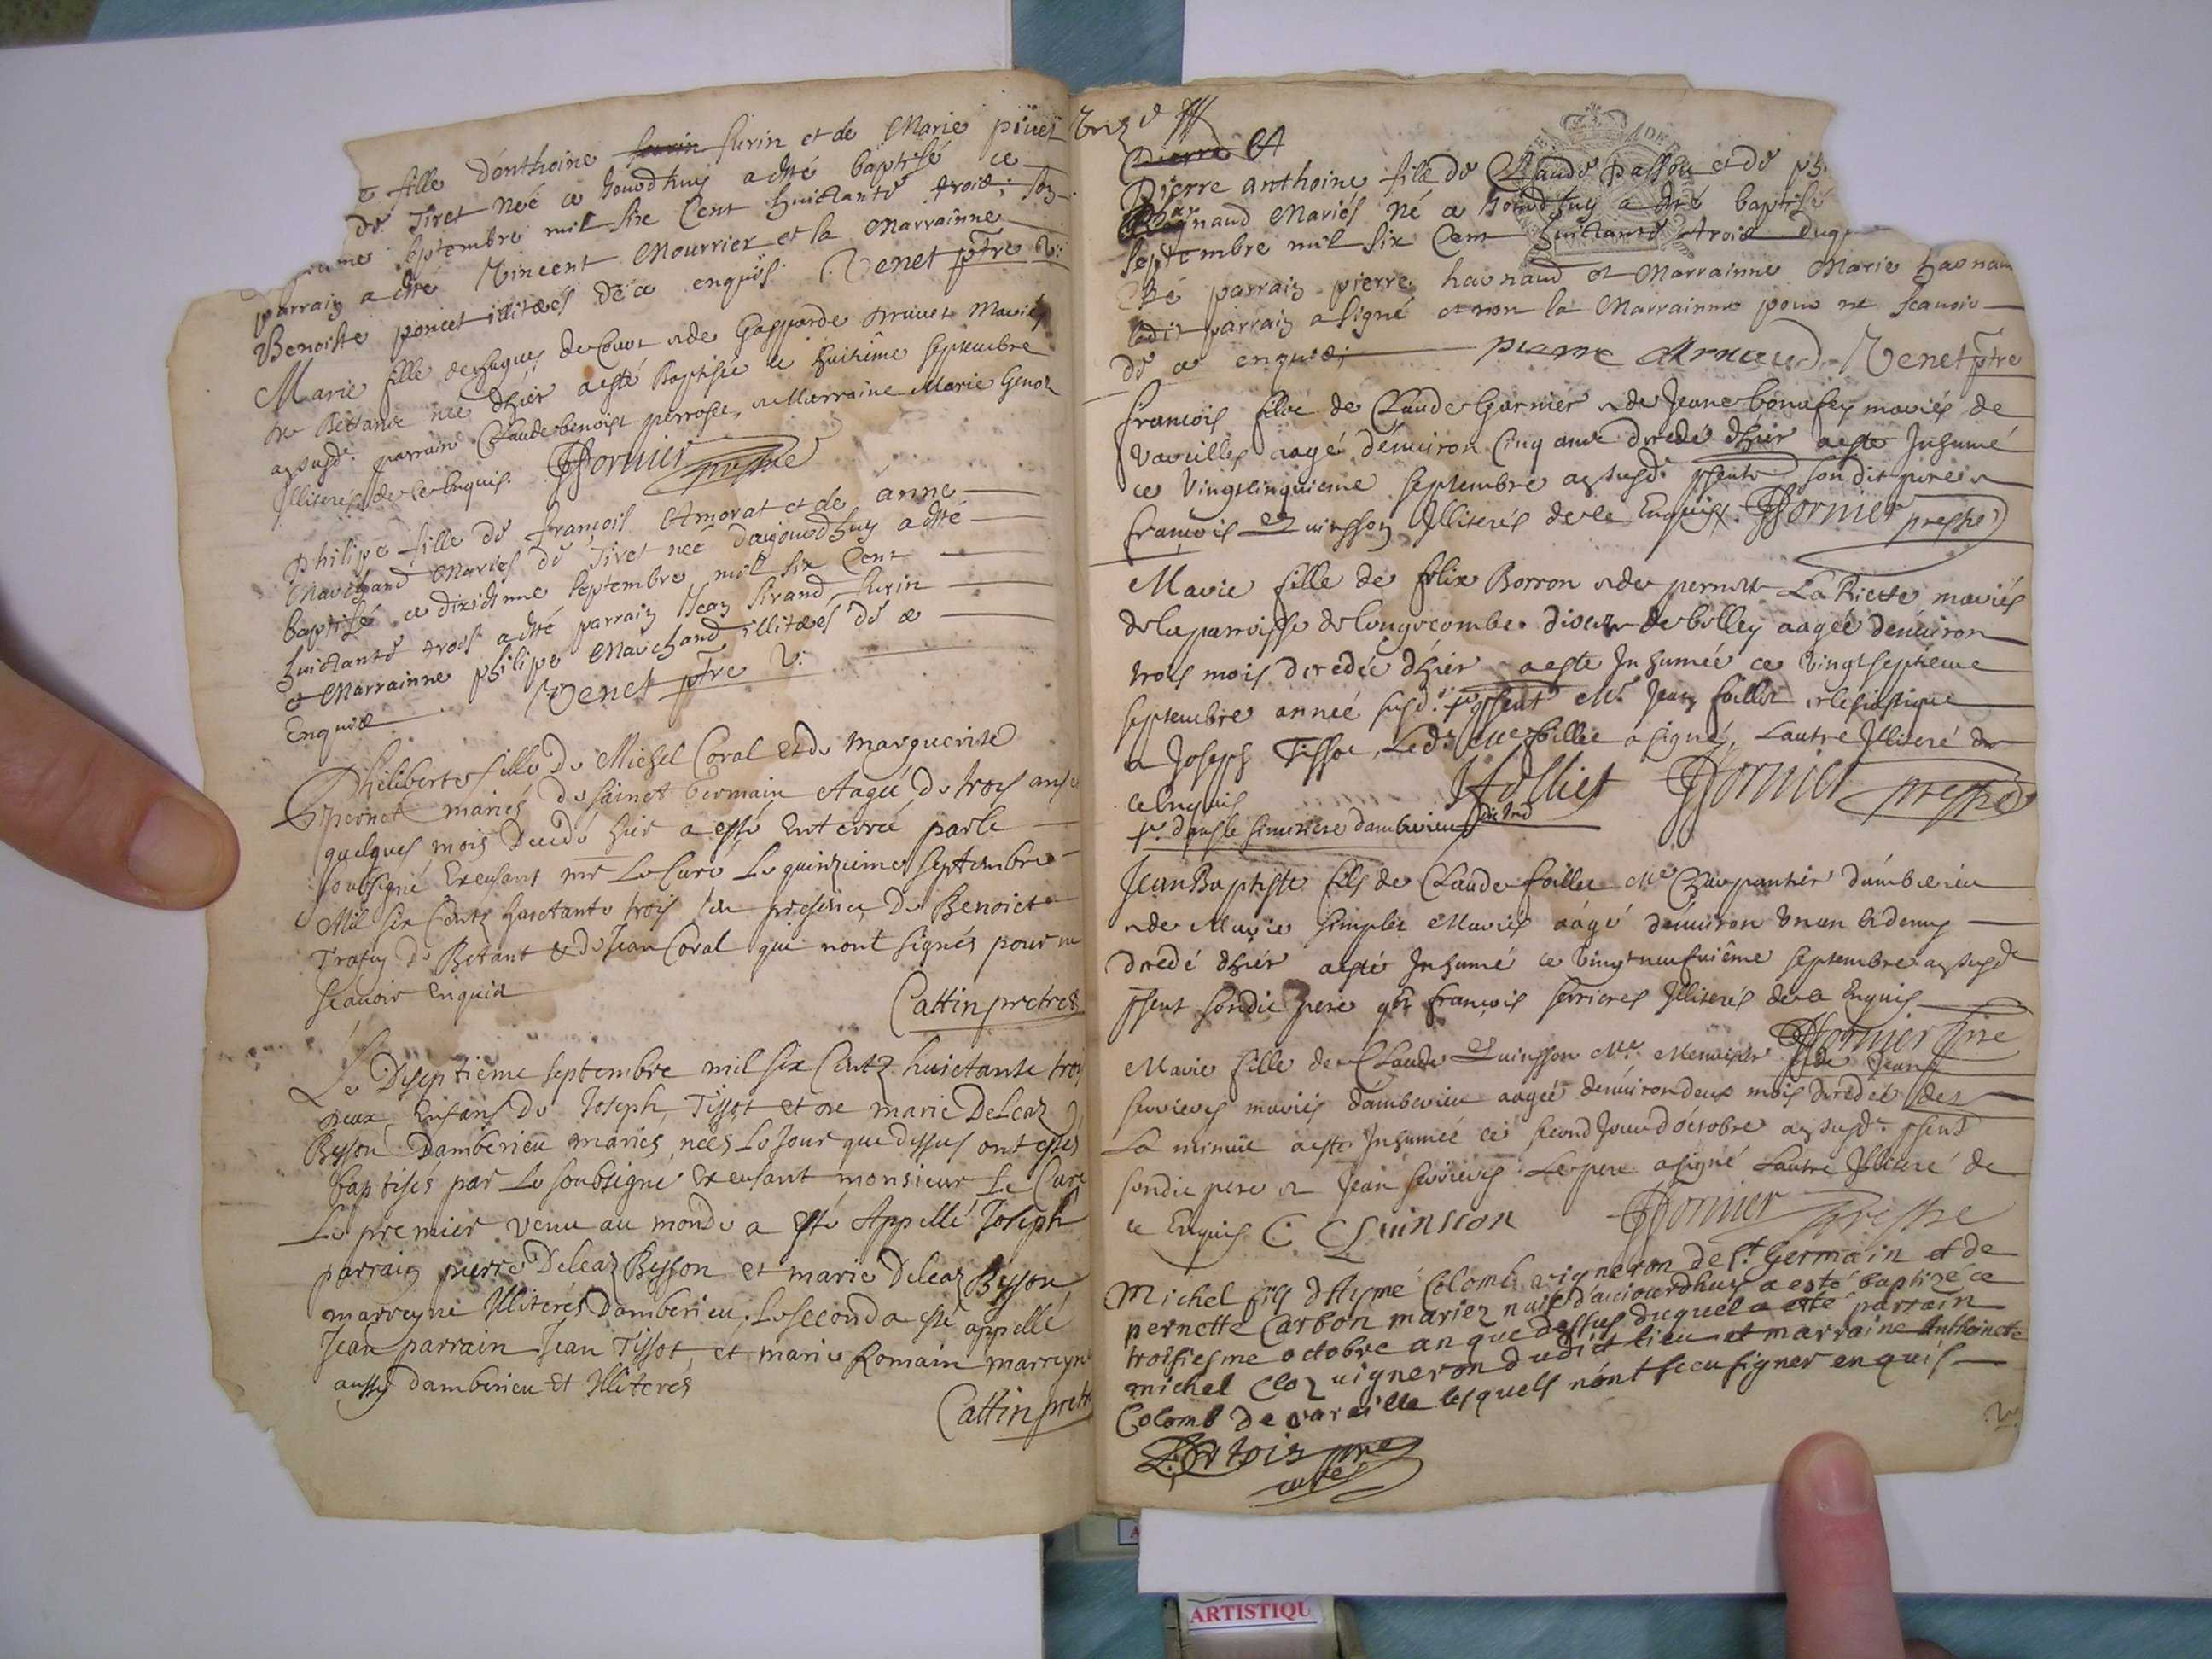 fille d'Anthoine Surin et de Marie
de Tiret Neé ce Jourdhuy a esté baptisé ce
septembre mil six Cent huictante trois, son
parrain a esté Vincent Mourrier et la Marrainne
Benoiste poncet illiterés de ce enquis. Venet ptre V:
Marie fille de hugues de Couot et de Gasparde Mariés
de Bettand née d'hier a esté Baptisée le huitième septembre
an susd. parrain Claude benoist perrosse, et Marraine Marie Genod
Illiterés de ce Enquis. Fornier prestre
Philipe fille de François Amorat et de anne
Marchand Mariés de Tiret neé daujourdhuy a esté
baptisé ce dixiesme Septembre mil six Cent
huictante trois a esté parrain Jean Sirand Surin
et Marrainne philipe Marchand illiterés de ce
Enquis Venet ptre V:
Philiberte fille de Michel Coral et de Marguerite
pernet mariés de sainct Germain et agée de troys ans et
quelques mois Decedé hier a esté Enterrée par le
soubsigné Excusant mr Le Curé Le quinzieme septembre
Mil six Centz huictante trois en presence de Benoict
Trafay de Betant & de Jean Coral qui nont signés pour ne
scavoir Enquis
Cattin pretre
Le Diseptième septembre mil six Centz huictante trois
deux Enfans de Joseph Tissot et de marie Deleaz
Bysson Damberieu mariés, neés Le Jour que dessus ont estés
baptisés par Le soubsigné Excusant monsieur Le Curé
Le premier venu au monde a esté Appellé Joseph
parrain pierre Deleaz Bysson et marie Deleaz Bysson
marreyne Illiterés Damberieu. Le second a esté appellé
Jean parrain Jean Tissot, et marie Romain marreyne
aussy damberieu et Illiteres
Cattin pretre
Pierre A
Pierre anthoine fils de Claude passou et de
Mariés Né ce Jourdhuy a esté baptisé
Septembre mil six Cent huictante trois duq
Esté parrain pierre harnaud et Marrainne Marie harnaud
ledit parrain a signé et non la Marrainne pour ne scauoir
de ce enquis; pierre Arnaud Venet ptre
francois fils de Claude Garnier et de Jeane bonafey mariés de
Vareilles aagé d'énuiron Cinq ans decedé d'hier a esté Inhumé
ce Vingtcinquieme septembre an susd. psents son dit pere et
françois Quinsson Illiterés de ce Enquis. Fornier prestre
Marie fille de felix Borron et de pernette La Riette mariés
de la parroisse de longecombe diocese de belley aagée denuiron
trois mois decedée d'hier a esté Inhumée ce Vingtseptieme
septembre année susd. psent Mre Jean foillet eclesiastique
et Joseph Tissot, Led. Mre foillet a signé, Lautre Illiteré de
ce enquis J folliet Fornier prestre
dans le simitiere damberieu
Jean Baptiste fils de Claude foillet Me Charpantier d'ámberieu
et de Marie Simplet Mariés aagé dénuiron Vn an et demy
decedé d'hier a esté Inhumé ce Vingtneufuième septembre an susd.
psent sondit pere et françois serrieres Illiterés de ce Enquis
Fornier ptre
Marie fille de Claude Quinsson Me Menuisier et de Jeane
serrieres mariés d'amberieu aagée denuiron deux mois decedée des
La minuit a esté Inhumée ce second Jour d'octobre an susd. psent
sondit pere et Jean serrieres Le pere a signé Lautre Illiteré de
ce Enquis C: Quinson Fornier prestre
Michel fils d'Aymé Colomb vigneron de St. Germain et de
pernette Carbon mariez naif d'auiourdhuy a esté baptizé ce
troisiesme octobre an que dessus duquel a esté parrain
michel Cloz uigneron dudict lieu et marraine Anthoinete
Colomb de vareille lesquels nónt sceu signer enquis
curé
ARTISTIQU